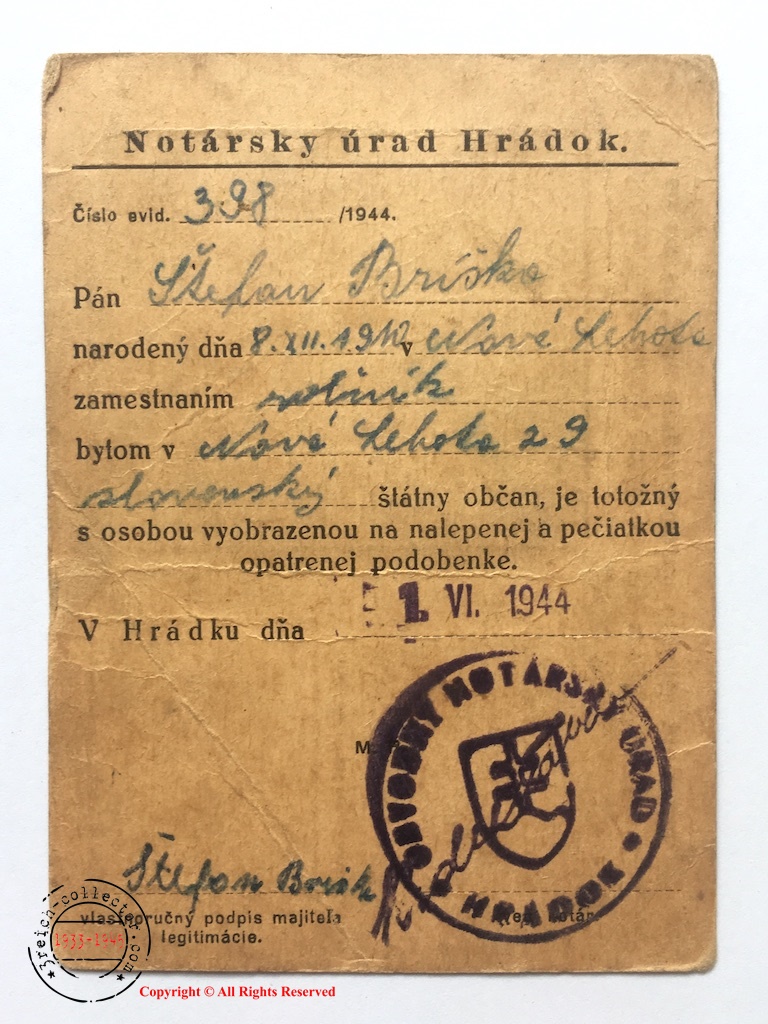 Notársky úrad Hrádok.
Číslo evid. 398 /1944.
Pán Štefan Briška
narodený dňa 8.XII.1912 v Nová Lehota
zamestnaním roľník
bytom v Nová Lehota 29
slovenský štátny občan, je totožný
s osobou vyobrazenou na nalepenej a pečiatkou
opatrenej podobenke.
V Hrádku dňa 1. VI. 1944
OBVODNÝ NOTÁRSKY ÚRAD
HRÁDOK
Štefan Brišk
vlastnoručný podpis majiteľa
legitimácie.
3reich-collector.com
1933-1945
Copyright © All Rights Reserved